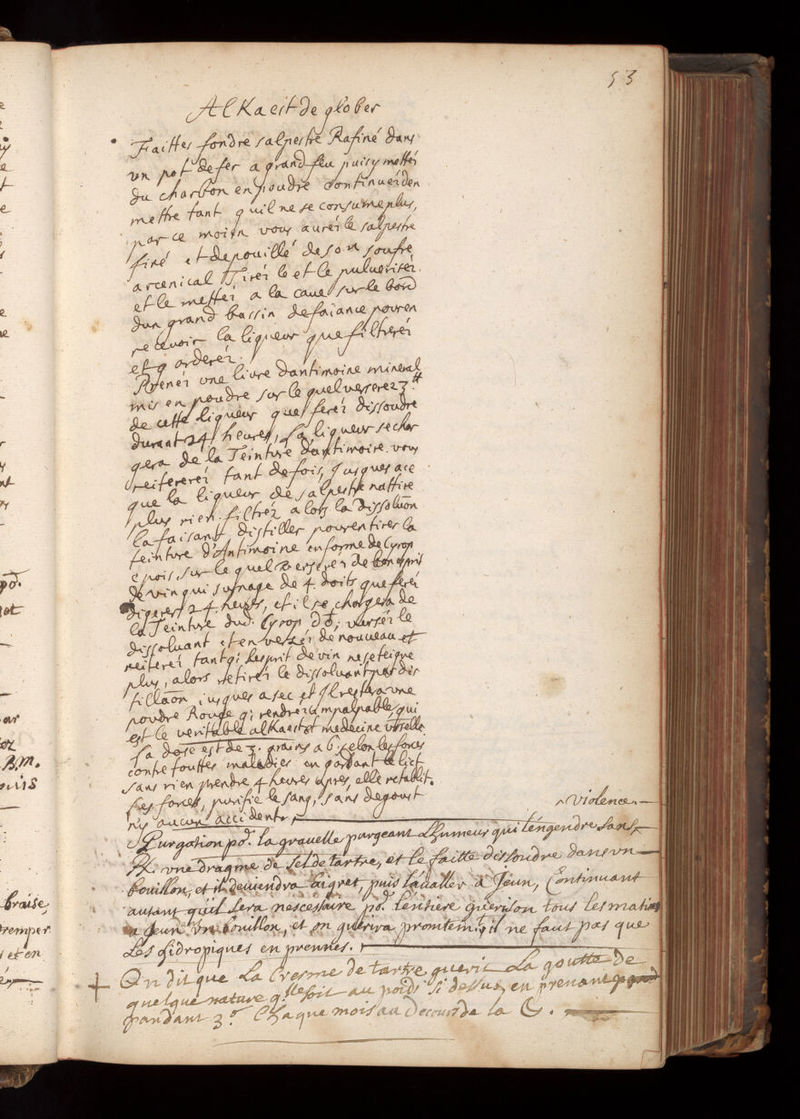 53
Alkaeit de glober
Faittes fondre salpestre Rafiné dans
vn pot de fer a grand feu puis y mettéz
du charbon en poudre continuéz den
mettre tant quil ne se consume plus,
par ce moien vous auréz le salpestre
fixé et depouillé de son soufre
arcenical Tiréz le et le pulueriséz
et le mettéz a la caue sur le bord
dun grand bassin defaiance pour en
recevoir la liqueur que filtreréz
et garderéz.
Prenéz vne livre dantimoine mineral
mis en poudre sur le quel verserez 3 ℔
de cette liqueur que feréz dissoudre
durant 24 heures, La liqueur se char
gera de la Teinture dantimoine. vous
reitereréz tant de fois, jusques a ce
que la liqueur de salpestre nattire
plus rien. filtréz alors la dissoluõn
la faisant distiller pour en tirer la
teinture d'Antimoine en forme de Cyrop
epois, sur le quel verseréz de bon esprit
de vin qui surnage de 4 doits que feréz
digerer 24 heures, et il se chargera de
la Teinture dud. Cyrop
dissoluant et en verséz de nouveau et
reiteréz tant q; lesprit de vin ne se teigne
plus, alors retiréz le dissoluant par dis
tillaõn jusques a sec et il restera vne
poudre Rouge q; rendréz impalpable, qui
est le veritable alkaest et medecine vlle
La dose est de 3. grains a 6. selon les forces
contre touttes maladies en gardant le lict
sans rien prendre 4 heures apres, elle retablit
les forces, purifie le sang, sans degoust
ny aucun accident
^ violence
Purgation pr. la grauelle purgeant Lhumeur qui Léngendre sans
℞ vne dragme de sel de tartre, et le faitte dissoudre dans vn
bouillon, et il deuiendra aigret, puis Lauallér à Jeun, Continuant
autant quil sera nescessaire pr. léntiére guérison tous les matins
a Jeun vn bouillon, et on guérira promtemt. il ne faut pas que
Les hidropiques en prennes.
+ On dit que La Cresme de tartre guerit La goutte de
quelque nature q'lle soit au poids si dessus, en prenant
pandant 3 Chaque mois au Decours de la ☾.
po.
et
ar
B.M.
puis
braise
remper
et en